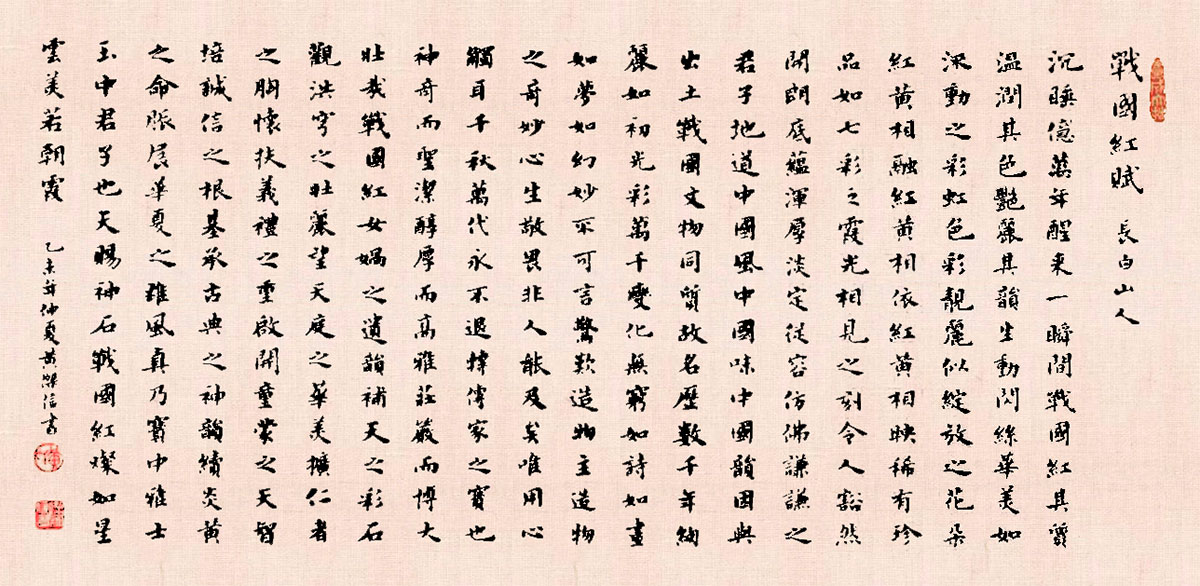 戰國紅賦 長白山人
沉睡億萬年醒來一瞬間戰國紅其質
溫潤其色艷麗其韻生動閃絲華美如
動之彩虹色彩靚麗似綻放之花朵
紅黃相融紅黃相依紅黃相映稀有珍
品如七彩之霞光相見之刻令人豁然
開朗底蘊渾厚淡定從容仿佛謙謙之
君子地道中國風中國味中國韻因與
出土戰國文物同質故名歷數千年絢
麗如初光彩萬千變化無窮如詩如畫
如夢如幻妙不可言驚歎造物主造物
之奇妙心生敬畏非人能及矣唯用心
觸耳千秋萬代永不退傳家之寶也
神奇而聖潔醇厚而高雅莊嚴而博大
壯哉戰國紅女媧之遺韻補天之彩石
觀洪穹之壯麗望天庭之華美擴仁者
之胸懷扶義禮之重啟開童蒙之天智
培誠信之根基承古典之神韻續炎黃
之命脈展華夏之雅風真乃寶中雅士
玉中君子也天賜神石戰國紅燦如星
雲美若朝霞 乙未年仲夏黃信書